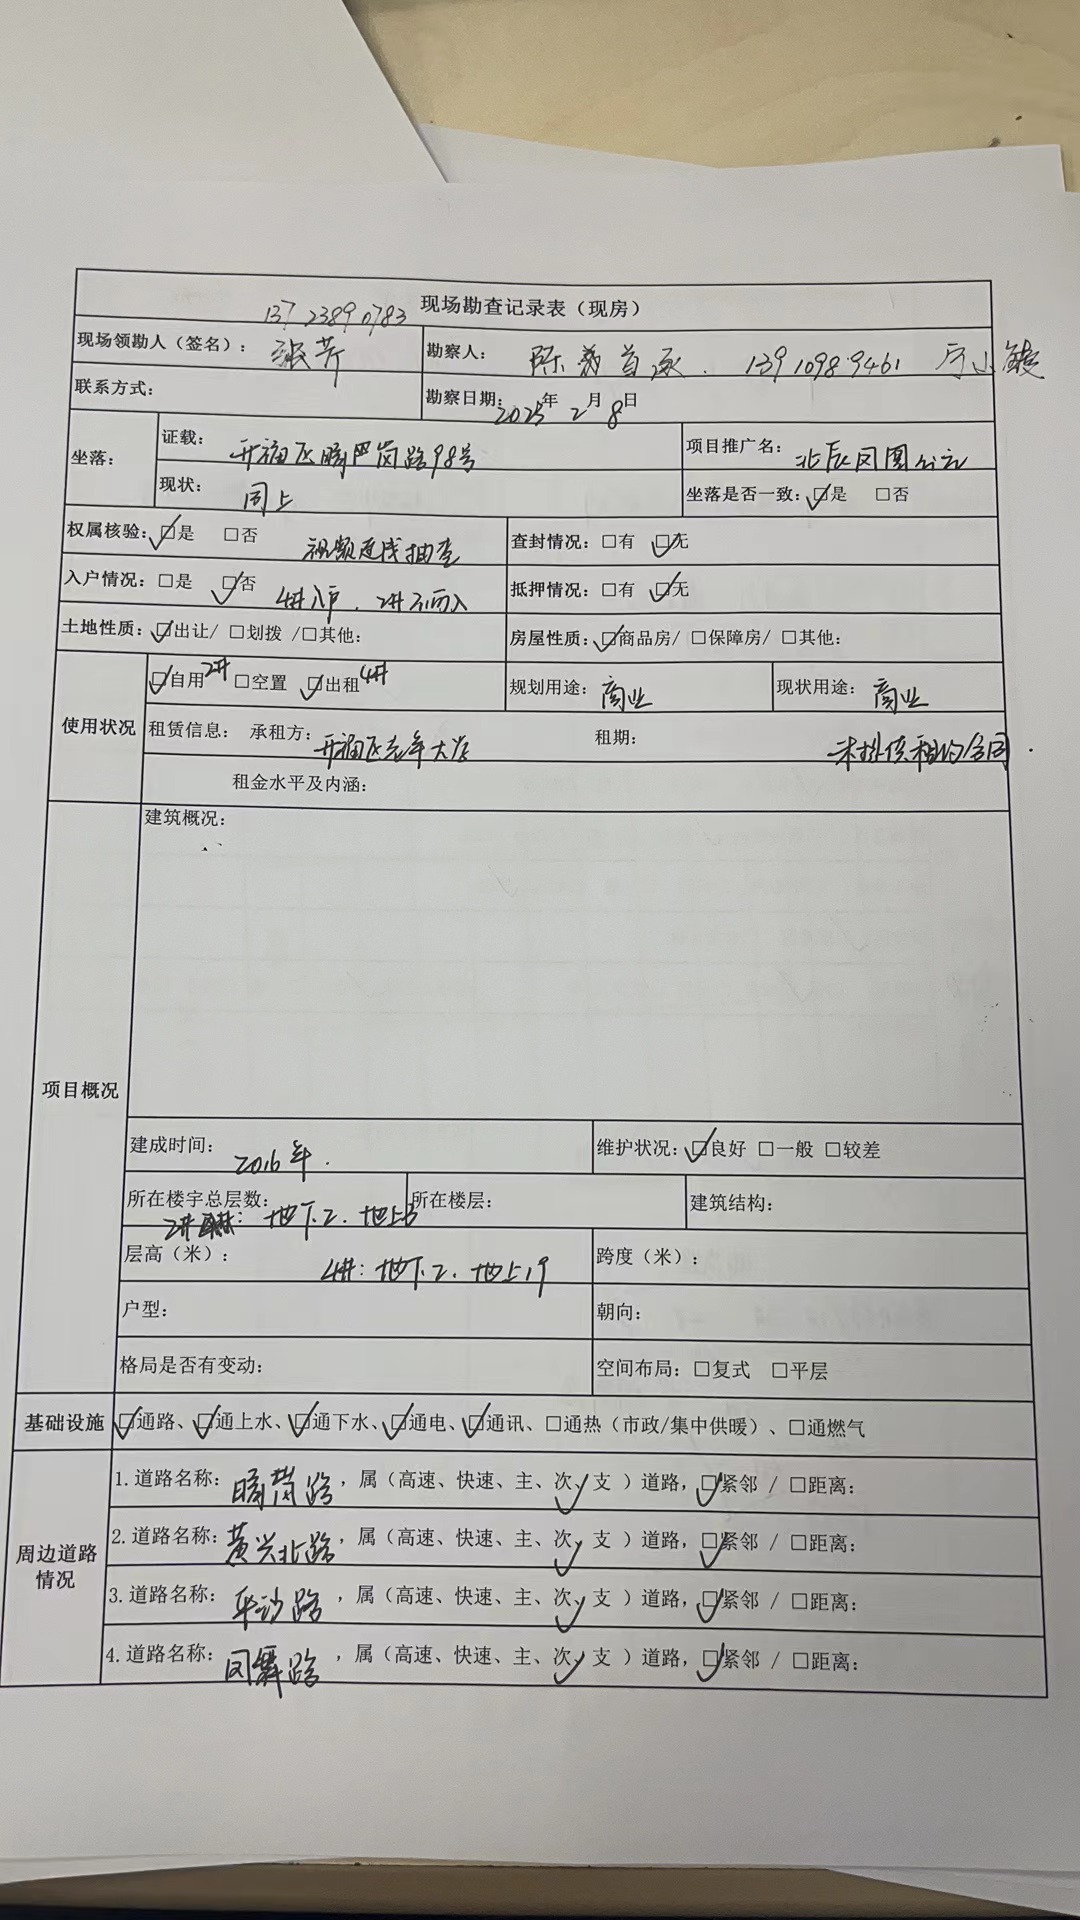 现场勘查记录表（现房）
13723890783
现场领勘人（签名）： 张芳 勘察人： 陈 13910989461
联系方式： 勘察日期：2025年2月8日
坐落： 证载： 开福区 路98号 项目推广名： 北辰凤凰
现状： 同上 坐落是否一致：☑是 □否
权属核验：☑是 □否 视频连线抽查 查封情况：□有 ☑无
入户情况：□是 ☑否 4#入户．2# 入 抵押情况：□有 ☑无
土地性质：☑出让/ □划拨 /□其他： 房屋性质：☑商品房/ □保障房/ □其他：
使用状况 ☑自用2# □空置 ☑出租4# 规划用途：商业 现状用途：商业
租赁信息： 承租方：开福区老年大学 租期： 未提供租约合同．
租金水平及内涵：
项目概况 建筑概况：
建成时间： 2016年． 维护状况：☑良好 □一般 □较差
所在楼宇总层数： 所在楼层： 建筑结构：
2# ：地下2．地上3
层高（米）： 4#：地下2．地上19 跨度（米）：
户型： 朝向：
格局是否有变动： 空间布局：□复式 □平层
基础设施 ☑通路、☑通上水、☑通下水、☑通电、☑通讯、□通热（市政/集中供暖）、□通燃气
周边道路情况 1.道路名称： 路，属（高速、快速、主、次✓、支 ）道路，☑紧邻 / □距离：
2.道路名称：黄兴北路，属（高速、快速、主、次✓、支 ）道路，☑紧邻 / □距离：
3.道路名称： 平沙路，属（高速、快速、主、次✓、支 ）道路，☑紧邻 / □距离：
4.道路名称： 凤舞路，属（高速、快速、主、次✓、支 ）道路，☑紧邻 / □距离：